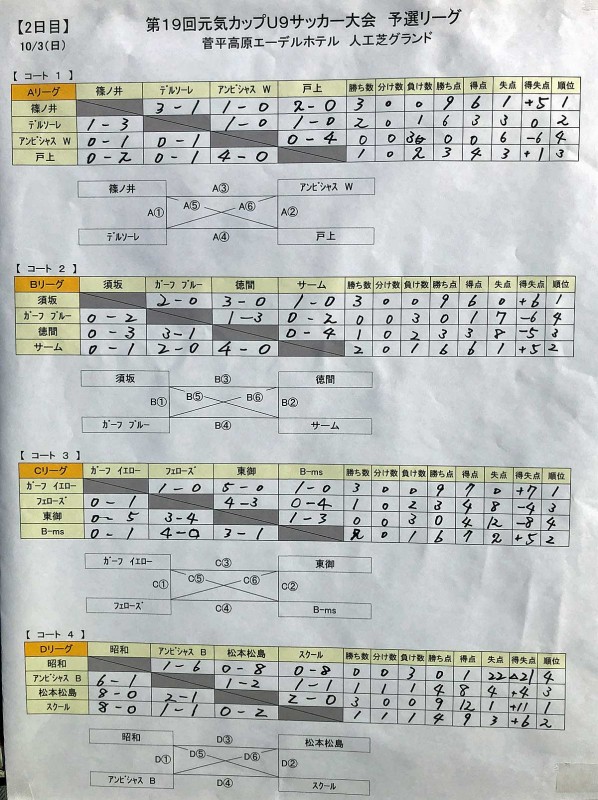 【2日目】
10/3(日)
第19回元気カップU9サッカー大会 予選リーグ
菅平高原エーデルホテル 人工芝グランド
【 コート 1 】
Aリーグ 篠ノ井 デルソーレ アンビシャス W 戸上 勝ち数 分け数 負け数 勝ち点 得点 失点 得失点 順位
篠ノ井 3-1 1-0 2-0 3 0 0 9 6 1 +5 1
デルソーレ 1-3 1-0 1-0 2 0 1 6 3 3 0 2
アンビシャス W 0-1 0-1 0-4 0 0 3 0 0 6 -6 4
戸上 0-2 0-1 4-0 1 0 2 3 4 3 +1 3
篠ノ井 A③ アンビシャス W
A① A⑤ A⑥ A②
デルソーレ A④ 戸上
【 コート 2 】
Bリーグ 須坂 ガーフ ブルー 徳間 サーム 勝ち数 分け数 負け数 勝ち点 得点 失点 得失点 順位
須坂 2-0 3-0 1-0 3 0 0 9 6 0 +6 1
ガーフ ブルー 0-2 1-3 0-2 0 0 3 0 1 7 -6 4
徳間 0-3 3-1 0-4 1 0 2 3 3 8 -5 3
サーム 0-1 2-0 4-0 2 0 1 6 6 1 +5 2
須坂 B③ 徳間
B① B⑤ B⑥ B②
ガーフ ブルー B④ サーム
【 コート 3 】
Cリーグ ガーフ イエロー フェローズ 東御 B-ms 勝ち数 分け数 負け数 勝ち点 得点 失点 得失点 順位
ガーフ イエロー 1-0 5-0 1-0 3 0 0 9 7 0 +7 1
フェローズ 0-1 4-3 0-4 1 0 2 3 4 8 -4 3
東御 0-5 3-4 1-3 0 0 3 0 4 12 -8 4
B-ms 0-1 4-0 3-1 2 0 1 6 7 2 +5 2
ガーフ イエロー C③ 東御
C① C⑤ C⑥ C②
フェローズ C④ B-ms
【 コート 4 】
Dリーグ 昭和 アンビシャス B 松本松島 スクール 勝ち数 分け数 負け数 勝ち点 得点 失点 得失点 順位
昭和 1-6 0-8 0-8 0 0 3 0 1 22 △21 4
アンビシャス B 6-1 1-2 1-1 1 1 1 4 8 4 +4 3
松本松島 8-0 2-1 2-0 3 0 0 9 12 1 +11 1
スクール 8-0 1-1 0-2 1 1 1 4 9 3 +6 2
昭和 D③ 松本松島
D① D⑤ D⑥ D②
アンビシャス B D④ スクール